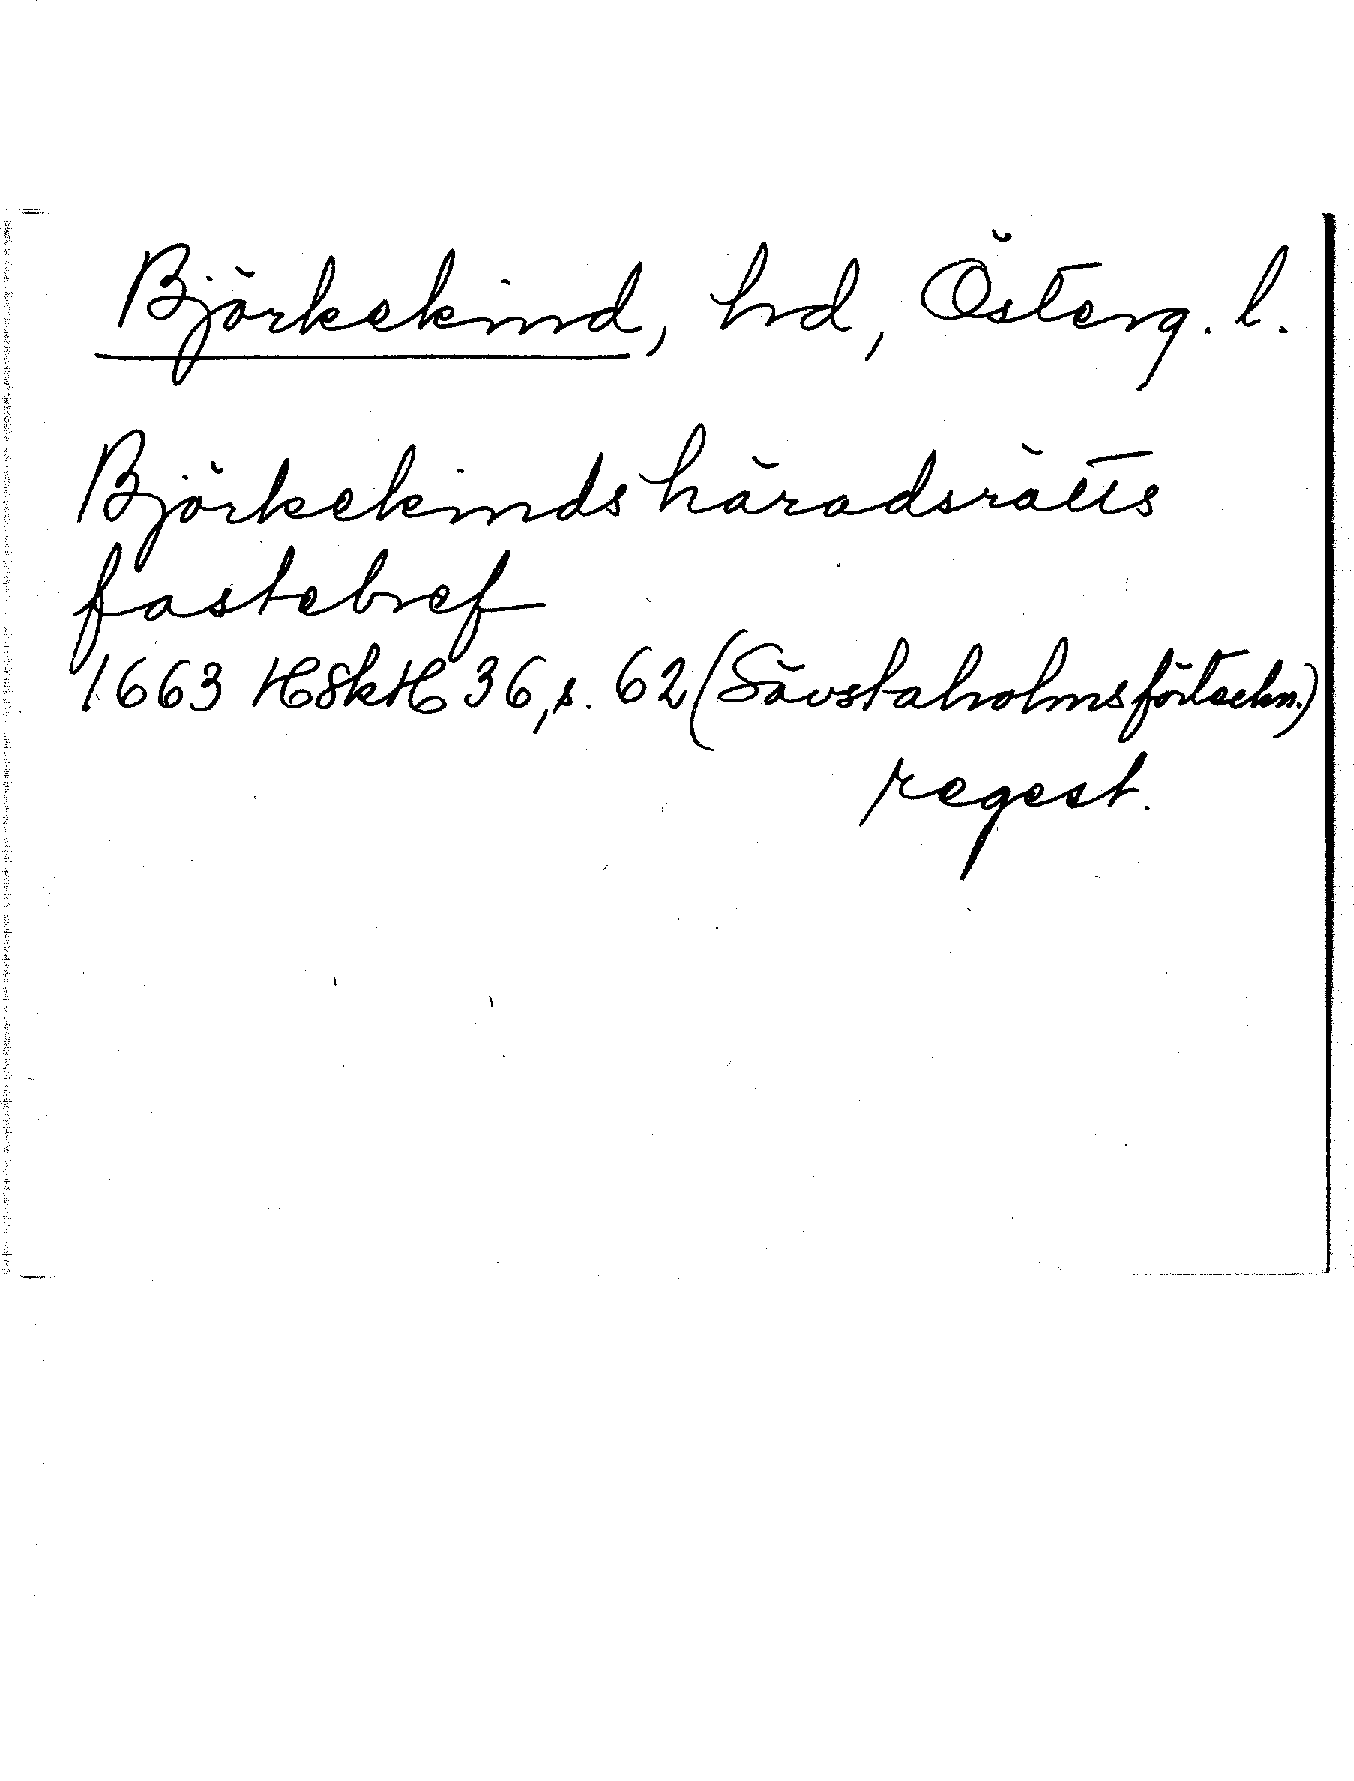 Björkekind, hrd, Österg. l.
Björkekinds häradsrätts
fastebref
1663 HSkH 36, s. 62 (Sävstaholmsförteckn.)
regest.